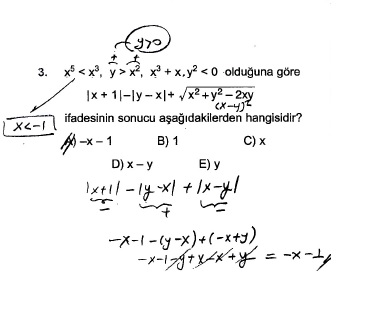 y>0
+ +
3. x⁵ < x³, y > x², x³ + x.y² < 0 olduğuna göre
|x + 1|–|y – x|+ √x² + y² – 2xy
(x-y)²
x<-1 ifadesinin sonucu aşağıdakilerden hangisidir?
A) –x – 1 B) 1 C) x
D) x – y E) y
|x+1| - |y-x| + |x-y|
- + -
-x-1-(y-x)+(-x+y)
-x-1-y+x-x+y = -x-1